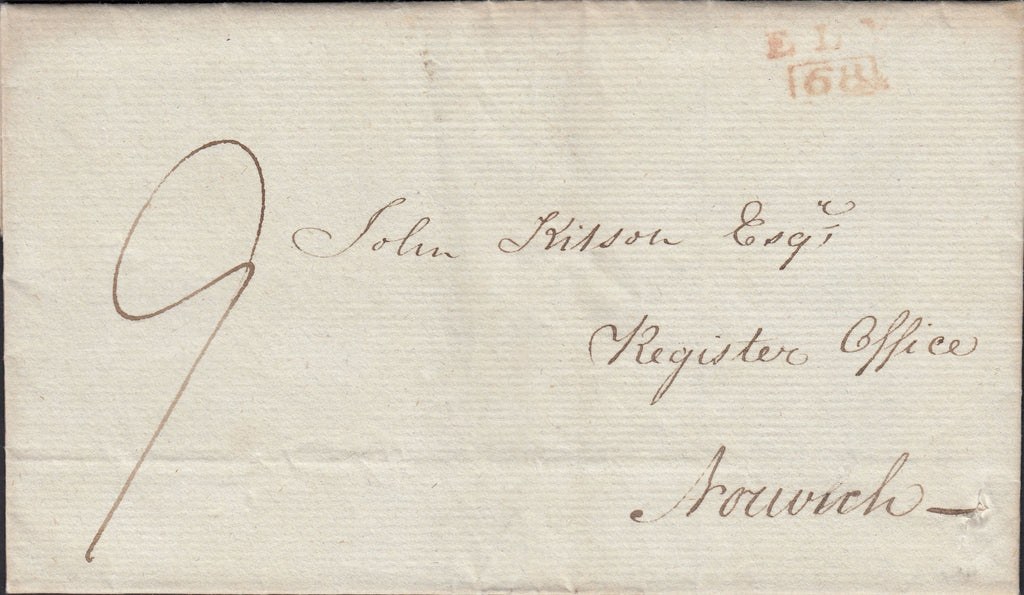 ELY
68
9
John Kitson Esqr
Register Office
Norwich